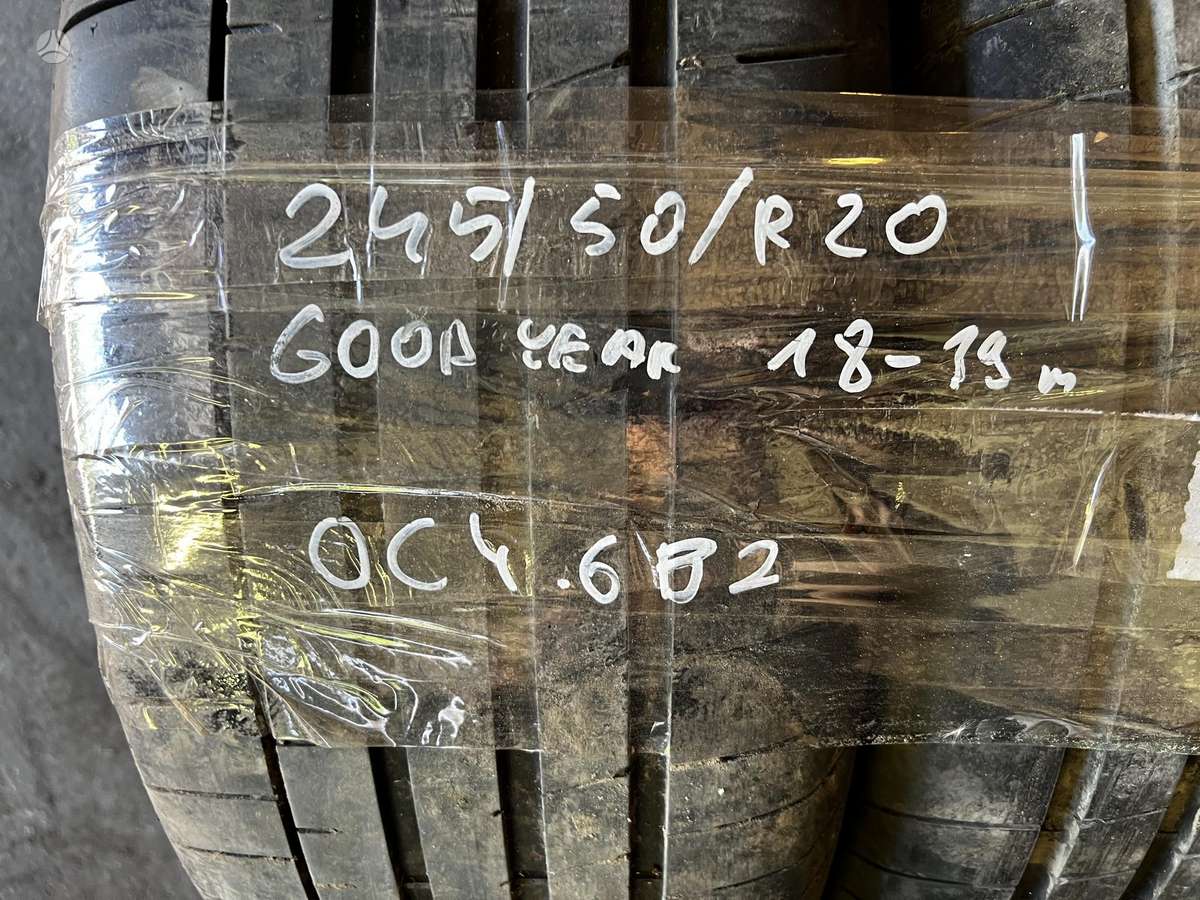 245/50/R20
GOOD YEAR 18-19 m
OC4.6B2